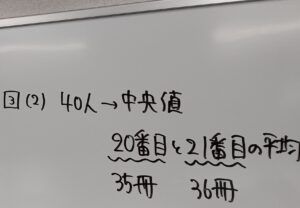 3 (2) 40人→中央値
20番目と21番目の平均
35冊 36冊